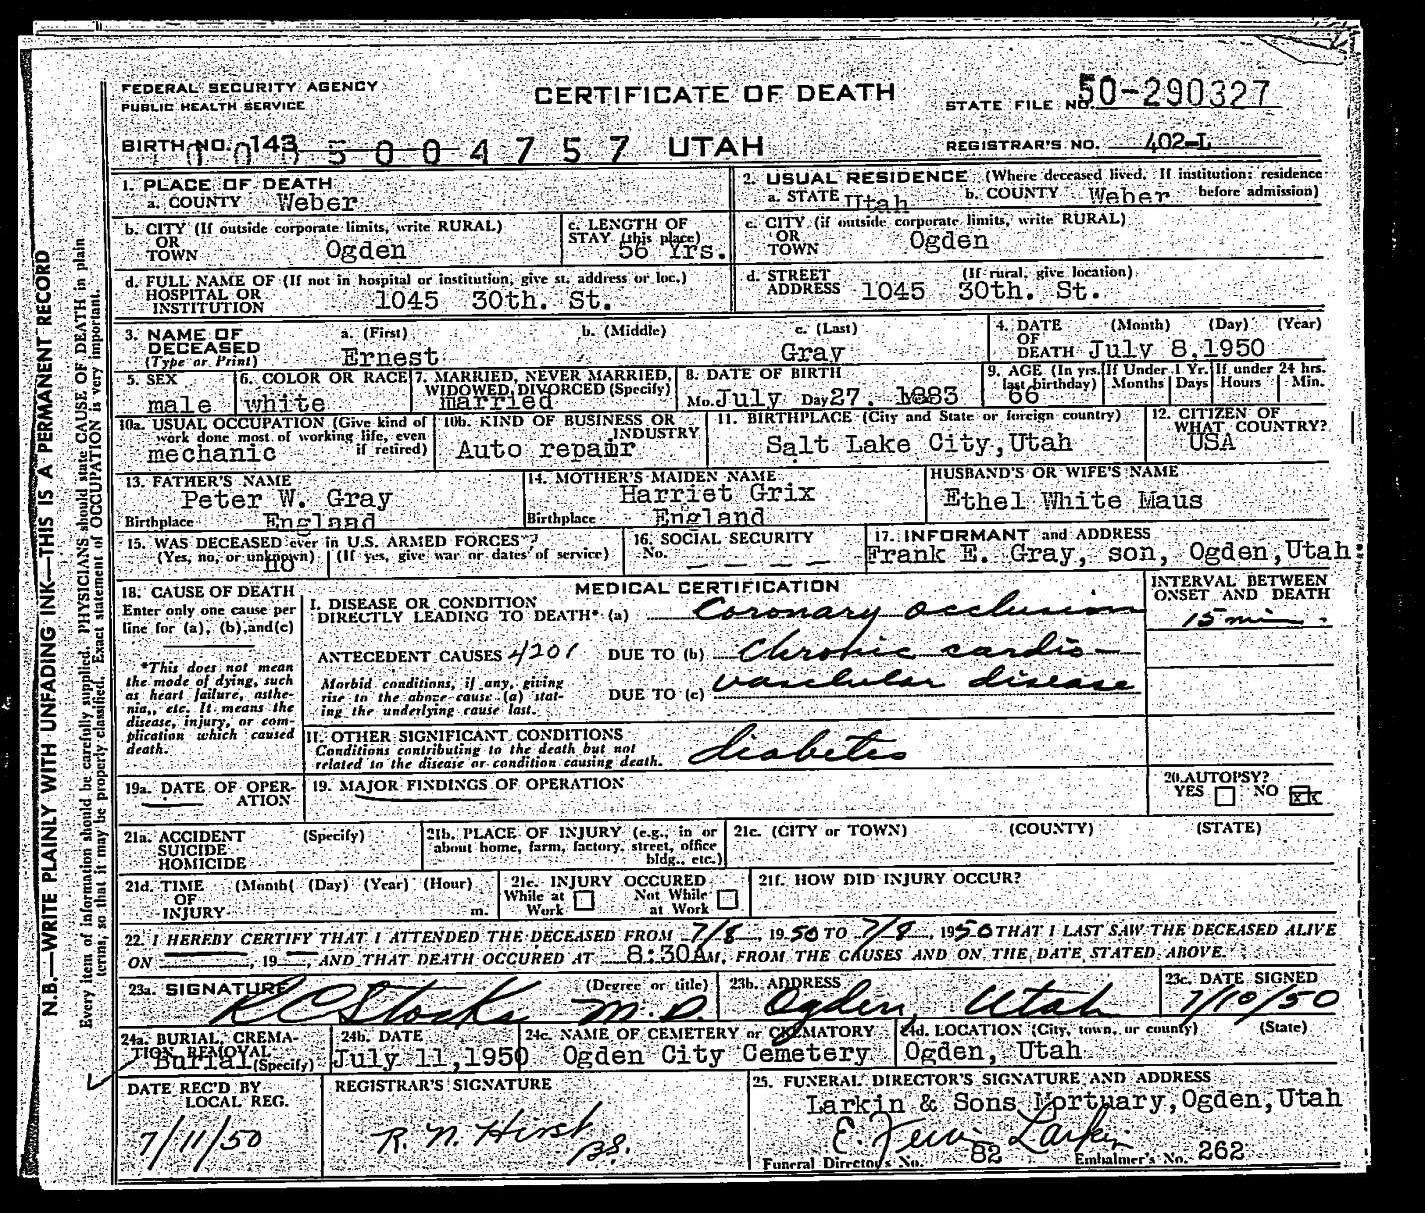 FEDERAL SECURITY AGENCY
PUBLIC HEALTH SERVICE
CERTIFICATE OF DEATH
STATE FILE NO. 50-290327
BIRTH NO. 143
5004757 UTAH
REGISTRAR'S NO. 402-L
N.B.—WRITE PLAINLY WITH UNFADING INK—THIS IS A PERMANENT RECORD
Every item of information should be carefully supplied. PHYSICIANS should state CAUSE OF DEATH in plain
terms, so that it may be properly classified. Exact statement of OCCUPATION is very important.
1. PLACE OF DEATH
a. COUNTY Weber
2. USUAL RESIDENCE (Where deceased lived. If institution: residence
a. STATE Utah b. COUNTY Weber before admission)
b. CITY (If outside corporate limits, write RURAL)
OR
TOWN Ogden
c. LENGTH OF
STAY (this place)
56 Yrs.
c. CITY (if outside corporate limits, write RURAL)
OR
TOWN Ogden
d. FULL NAME OF (If not in hospital or institution, give st. address or loc.)
HOSPITAL OR
INSTITUTION 1045 30th. St.
d. STREET (If rural, give location)
ADDRESS 1045 30th. St.
3. NAME OF
DECEASED
(Type or Print)
a. (First) b. (Middle) c. (Last)
Ernest Gray
4. DATE (Month) (Day) (Year)
OF
DEATH July 8,1950
5. SEX
male
6. COLOR OR RACE
white
7. MARRIED, NEVER MARRIED,
WIDOWED, DIVORCED (Specify)
married
8. DATE OF BIRTH
Mo. July Day 27. 1883
9. AGE (In yrs. If Under 1 Yr. If under 24 hrs.
last birthday) Months Days Hours Min.
66
10a. USUAL OCCUPATION (Give kind of
work done most of working life, even
if retired)
mechanic
10b. KIND OF BUSINESS OR
INDUSTRY
Auto repair
11. BIRTHPLACE (City and State or foreign country)
Salt Lake City,Utah
12. CITIZEN OF
WHAT COUNTRY?
USA
13. FATHER'S NAME
Peter W. Gray
Birthplace England
14. MOTHER'S MAIDEN NAME
Harriet Grix
Birthplace England
HUSBAND'S OR WIFE'S NAME
Ethel White Maus
15. WAS DECEASED ever in U.S. ARMED FORCES?
(Yes, no, or unknown) (If yes, give war or dates of service)
no
16. SOCIAL SECURITY
No. — — — —
17. INFORMANT and ADDRESS
Frank E. Gray, son, Ogden,Utah.
18. CAUSE OF DEATH
Enter only one cause per
line for (a), (b), and (c)
*This does not mean
the mode of dying, such
as heart failure, asthe-
nia,, etc. It means the
disease, injury, or com-
plication which caused
death.
MEDICAL CERTIFICATION
I. DISEASE OR CONDITION
DIRECTLY LEADING TO DEATH* (a) Coronary occlusion
ANTECEDENT CAUSES 4201 DUE TO (b) Chronic cardio-
Morbid conditions, if any, giving
rise to the above cause (a) stat-
ing the underlying cause last.
DUE TO (c) vasclular disease
INTERVAL BETWEEN
ONSET AND DEATH
15 min.
II. OTHER SIGNIFICANT CONDITIONS
Conditions contributing to the death but not
related to the disease or condition causing death.
diabetes
19a. DATE OF OPER-
ATION
19. MAJOR FINDINGS OF OPERATION
20. AUTOPSY?
YES NO
21a. ACCIDENT (Specify)
SUICIDE
HOMICIDE
21b. PLACE OF INJURY (e.g., in or
about home, farm, factory, street, office
bldg., etc.)
21c. (CITY or TOWN) (COUNTY) (STATE)
21d. TIME (Month( (Day) (Year) (Hour)
OF
INJURY m.
21e. INJURY OCCURED
While at Not While
Work at Work
21f. HOW DID INJURY OCCUR?
22. I HEREBY CERTIFY THAT I ATTENDED THE DECEASED FROM 7/8, 1950 TO 7/8, 1950 THAT I LAST SAW THE DECEASED ALIVE
ON , 19 , AND THAT DEATH OCCURED AT 8:30A M, FROM THE CAUSES AND ON THE DATE STATED ABOVE.
23a. SIGNATURE (Degree or title)
R C Stocks M.D.
23b. ADDRESS
Ogden, Utah
23c. DATE SIGNED
7/10/50
24a. BURIAL, CREMA-
TION, REMOVAL
Burial (Specify)
24b. DATE
July 11,1950
24c. NAME OF CEMETERY or CREMATORY
Ogden City Cemetery
24d. LOCATION (City, town, or county) (State)
Ogden, Utah
DATE REC'D BY
LOCAL REG.
7/11/50
REGISTRAR'S SIGNATURE
R. N. Hirst
25. FUNERAL DIRECTOR'S SIGNATURE AND ADDRESS
Larkin & Sons Mortuary,Ogden,Utah
Larkin
Funeral Director's No. 82 Embalmer's No. 262